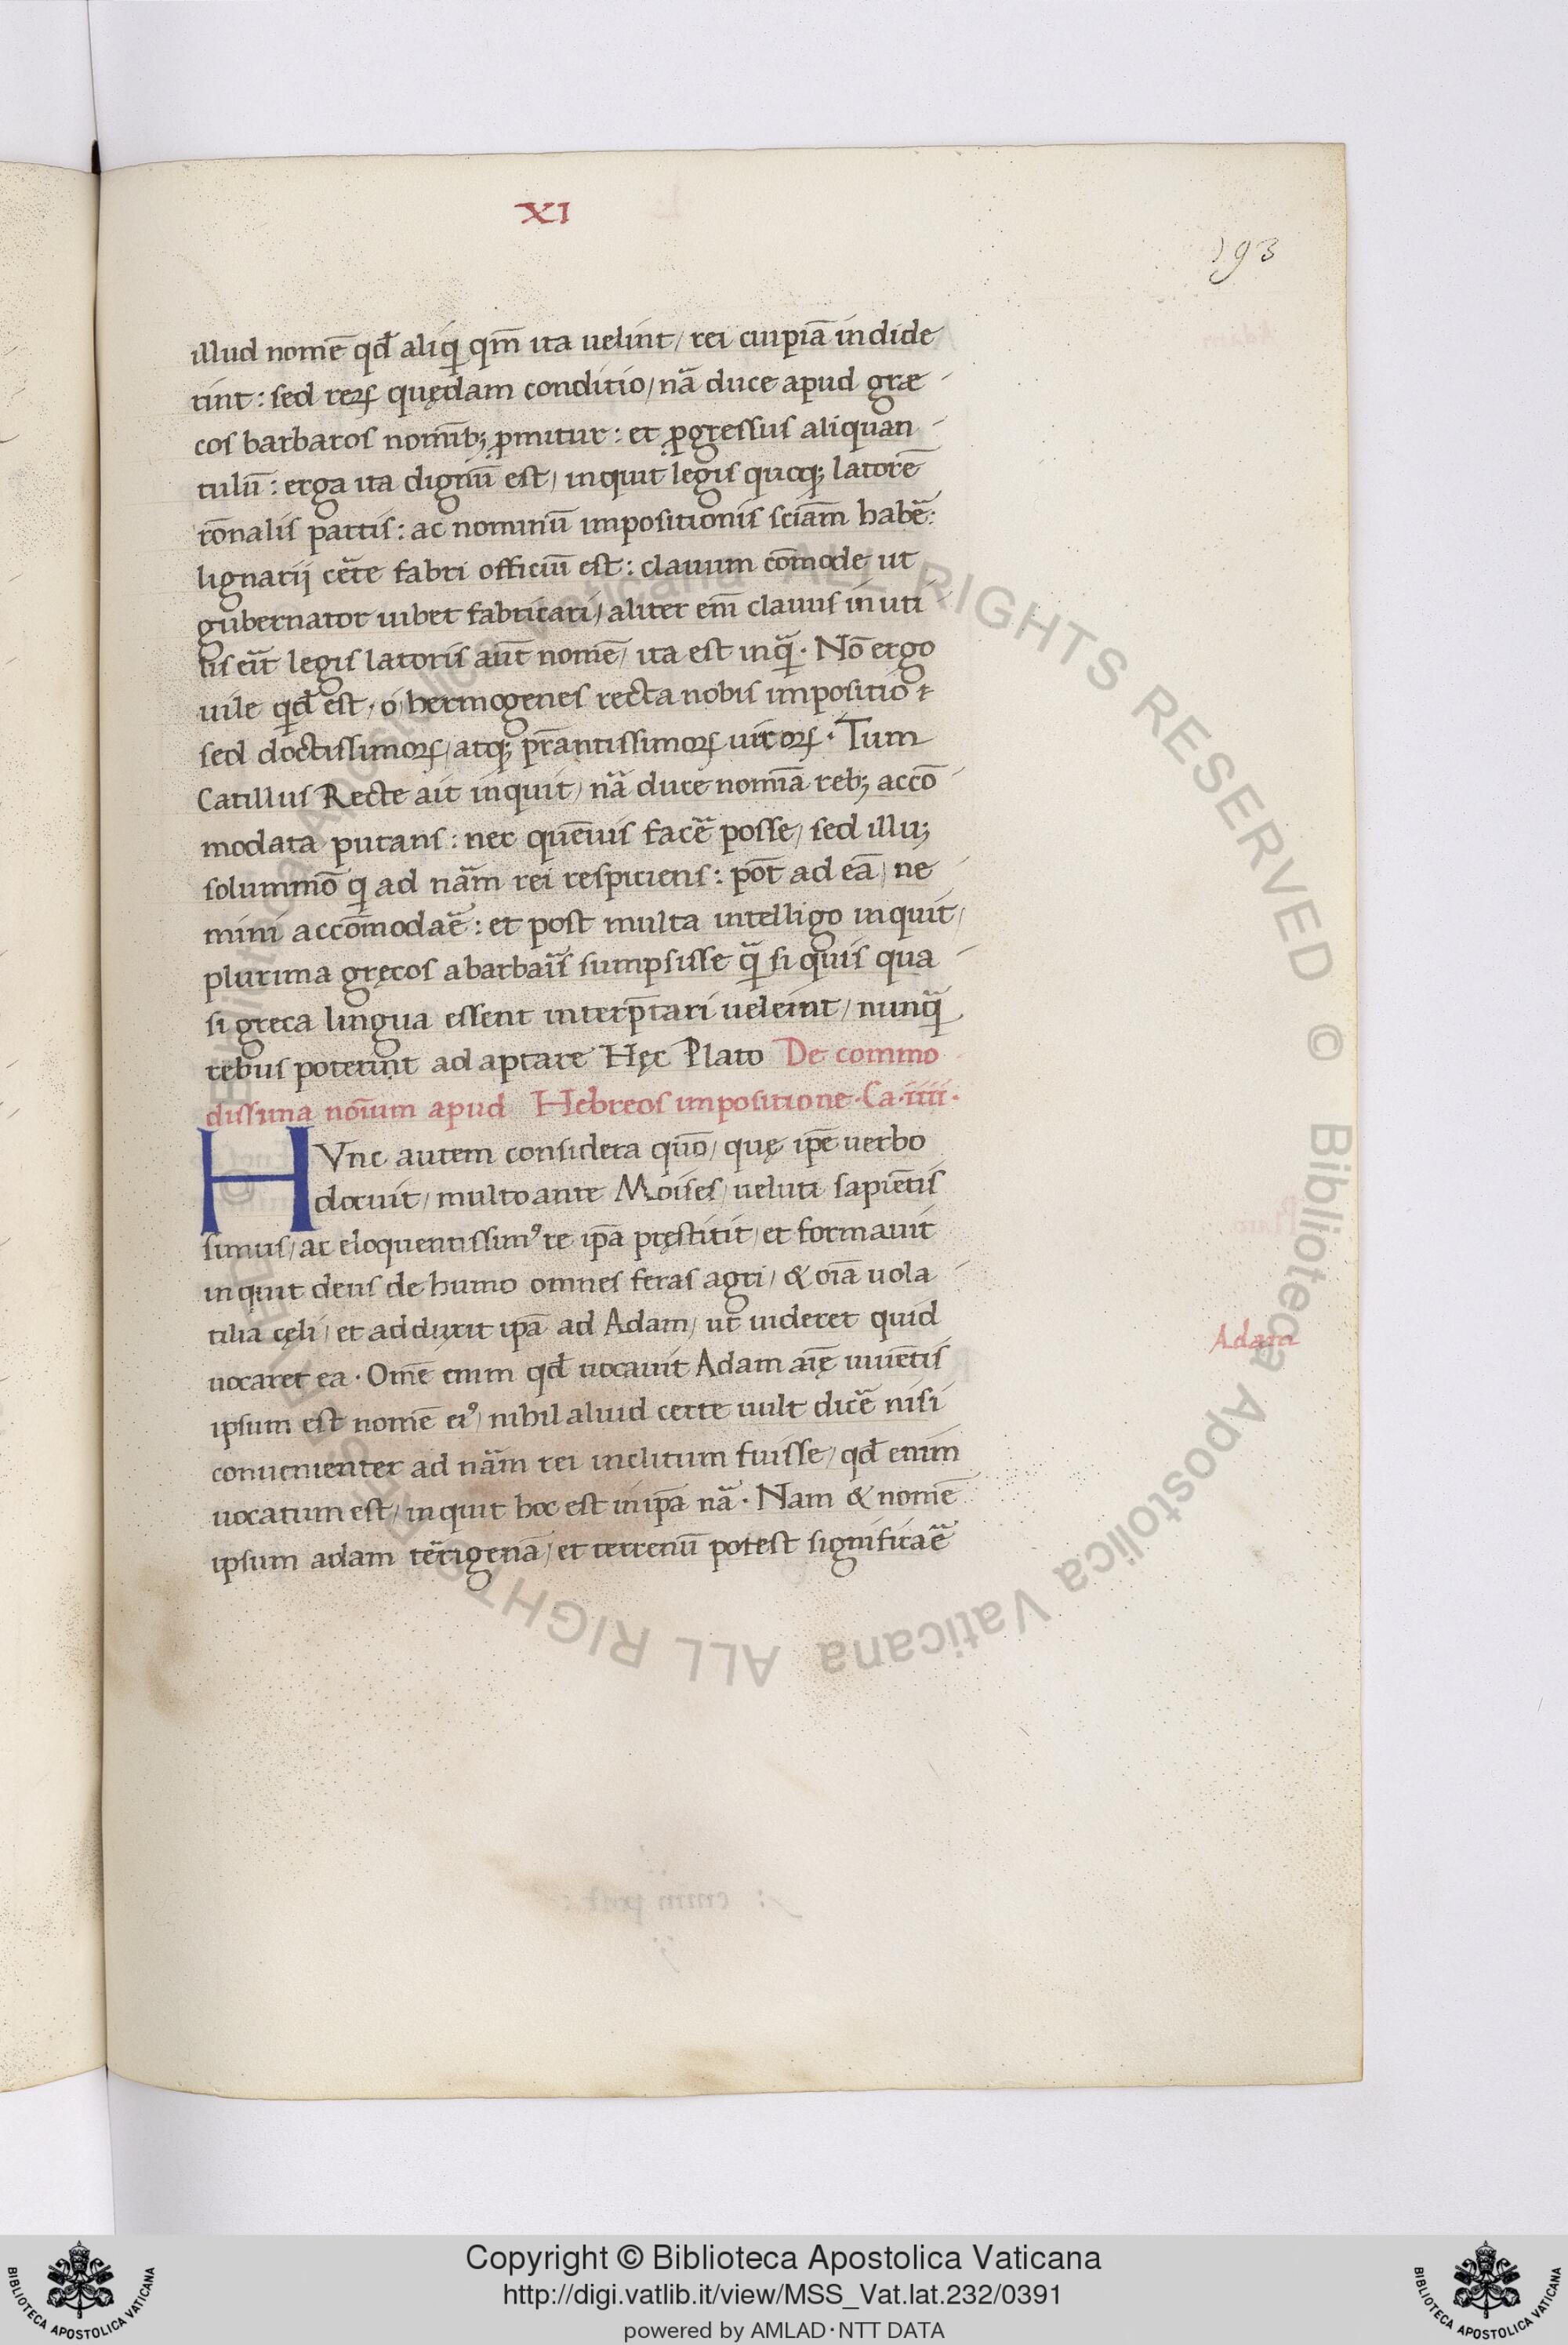 XI
193
illud nomē qđ aliq̇ qm̄ ita uelint / rei cuipiā indide
rint : sed reꝝ quędam conditio / nā duce apud græ
cos barbaros nomīb; ꝓmitur : et ꝓgressus aliquan
tulū : erga ita dignū est / inquit legis quoq; latorē
rōnalis partis : ac nominū impositionis sciām habē :
lignarij cēte fabri officiū est : clauum cōmode ut
gubernator iubet fabricari / aliter em̄ clauus inuti
lis eīt legis latoris aūt nomē / ita est inqᵃ̇ · Nō ergo
uile qđ est · o hermogenes recta nobis impositio :
sed doctissimoꝝ / atq; pr̄antissimoꝝ uiroꝝ · Tum
Catillus Recte ait inquit / nā duce nomīa reb; accō
modata putans : nec quēuis facē posse / sed illu;
solummō q̇ ad nām rei respiciens : pōt ad eā / ne
mini accōmodaē : et post multa intelligo inquit /
plurima gręcos a barbaīs sumpsisse qᵃ̇ si quis qua
si greca lingua essent interp̄tari ueleint / nunqᵃ̇
rebus poterint adaptare Hęc Plato De commo
dissima noīum apud Hebreos impositione · Ca · iiii ·
HVnc autem considera quō / quę ip̄e uerbo
docuit / multo ante Moises / ueluti sapiētis
simus / ac eloquentissimꝰ re ip̄a pręstitit / et formauit
inquit deus de humo omnes feras agri / & oīa uola
tilia cęli / et adduxit ip̄a ad Adam / ut uideret quid
uocaret ea · Omē enim qđ uocauit Adam aīę uiuētis
ipsum est nomē eiꝰ / nihil aluid certe uult dicē nisi
conuenienter ad nām rei inclitum fuisse / qđ enim
uocatum est / inquit hoc est in ip̄a nā · Nam & nomē
ipsum adam tērigenā / et terrenū potest significaē
Adam
Copyright © Biblioteca Apostolica Vaticana
http://digi.vatlib.it/view/MSS_Vat.lat.232/0391
powered by AMLAD·NTT DATA
BIBLIOTECA APOSTOLICA VATICANA
BIBLIOTECA APOSTOLICA VATICANA
© Biblioteca Apostolica Vaticana ALL RIGHTS RESERVED © Biblioteca Apostolica Vaticana ALL RIGHTS RESERVED